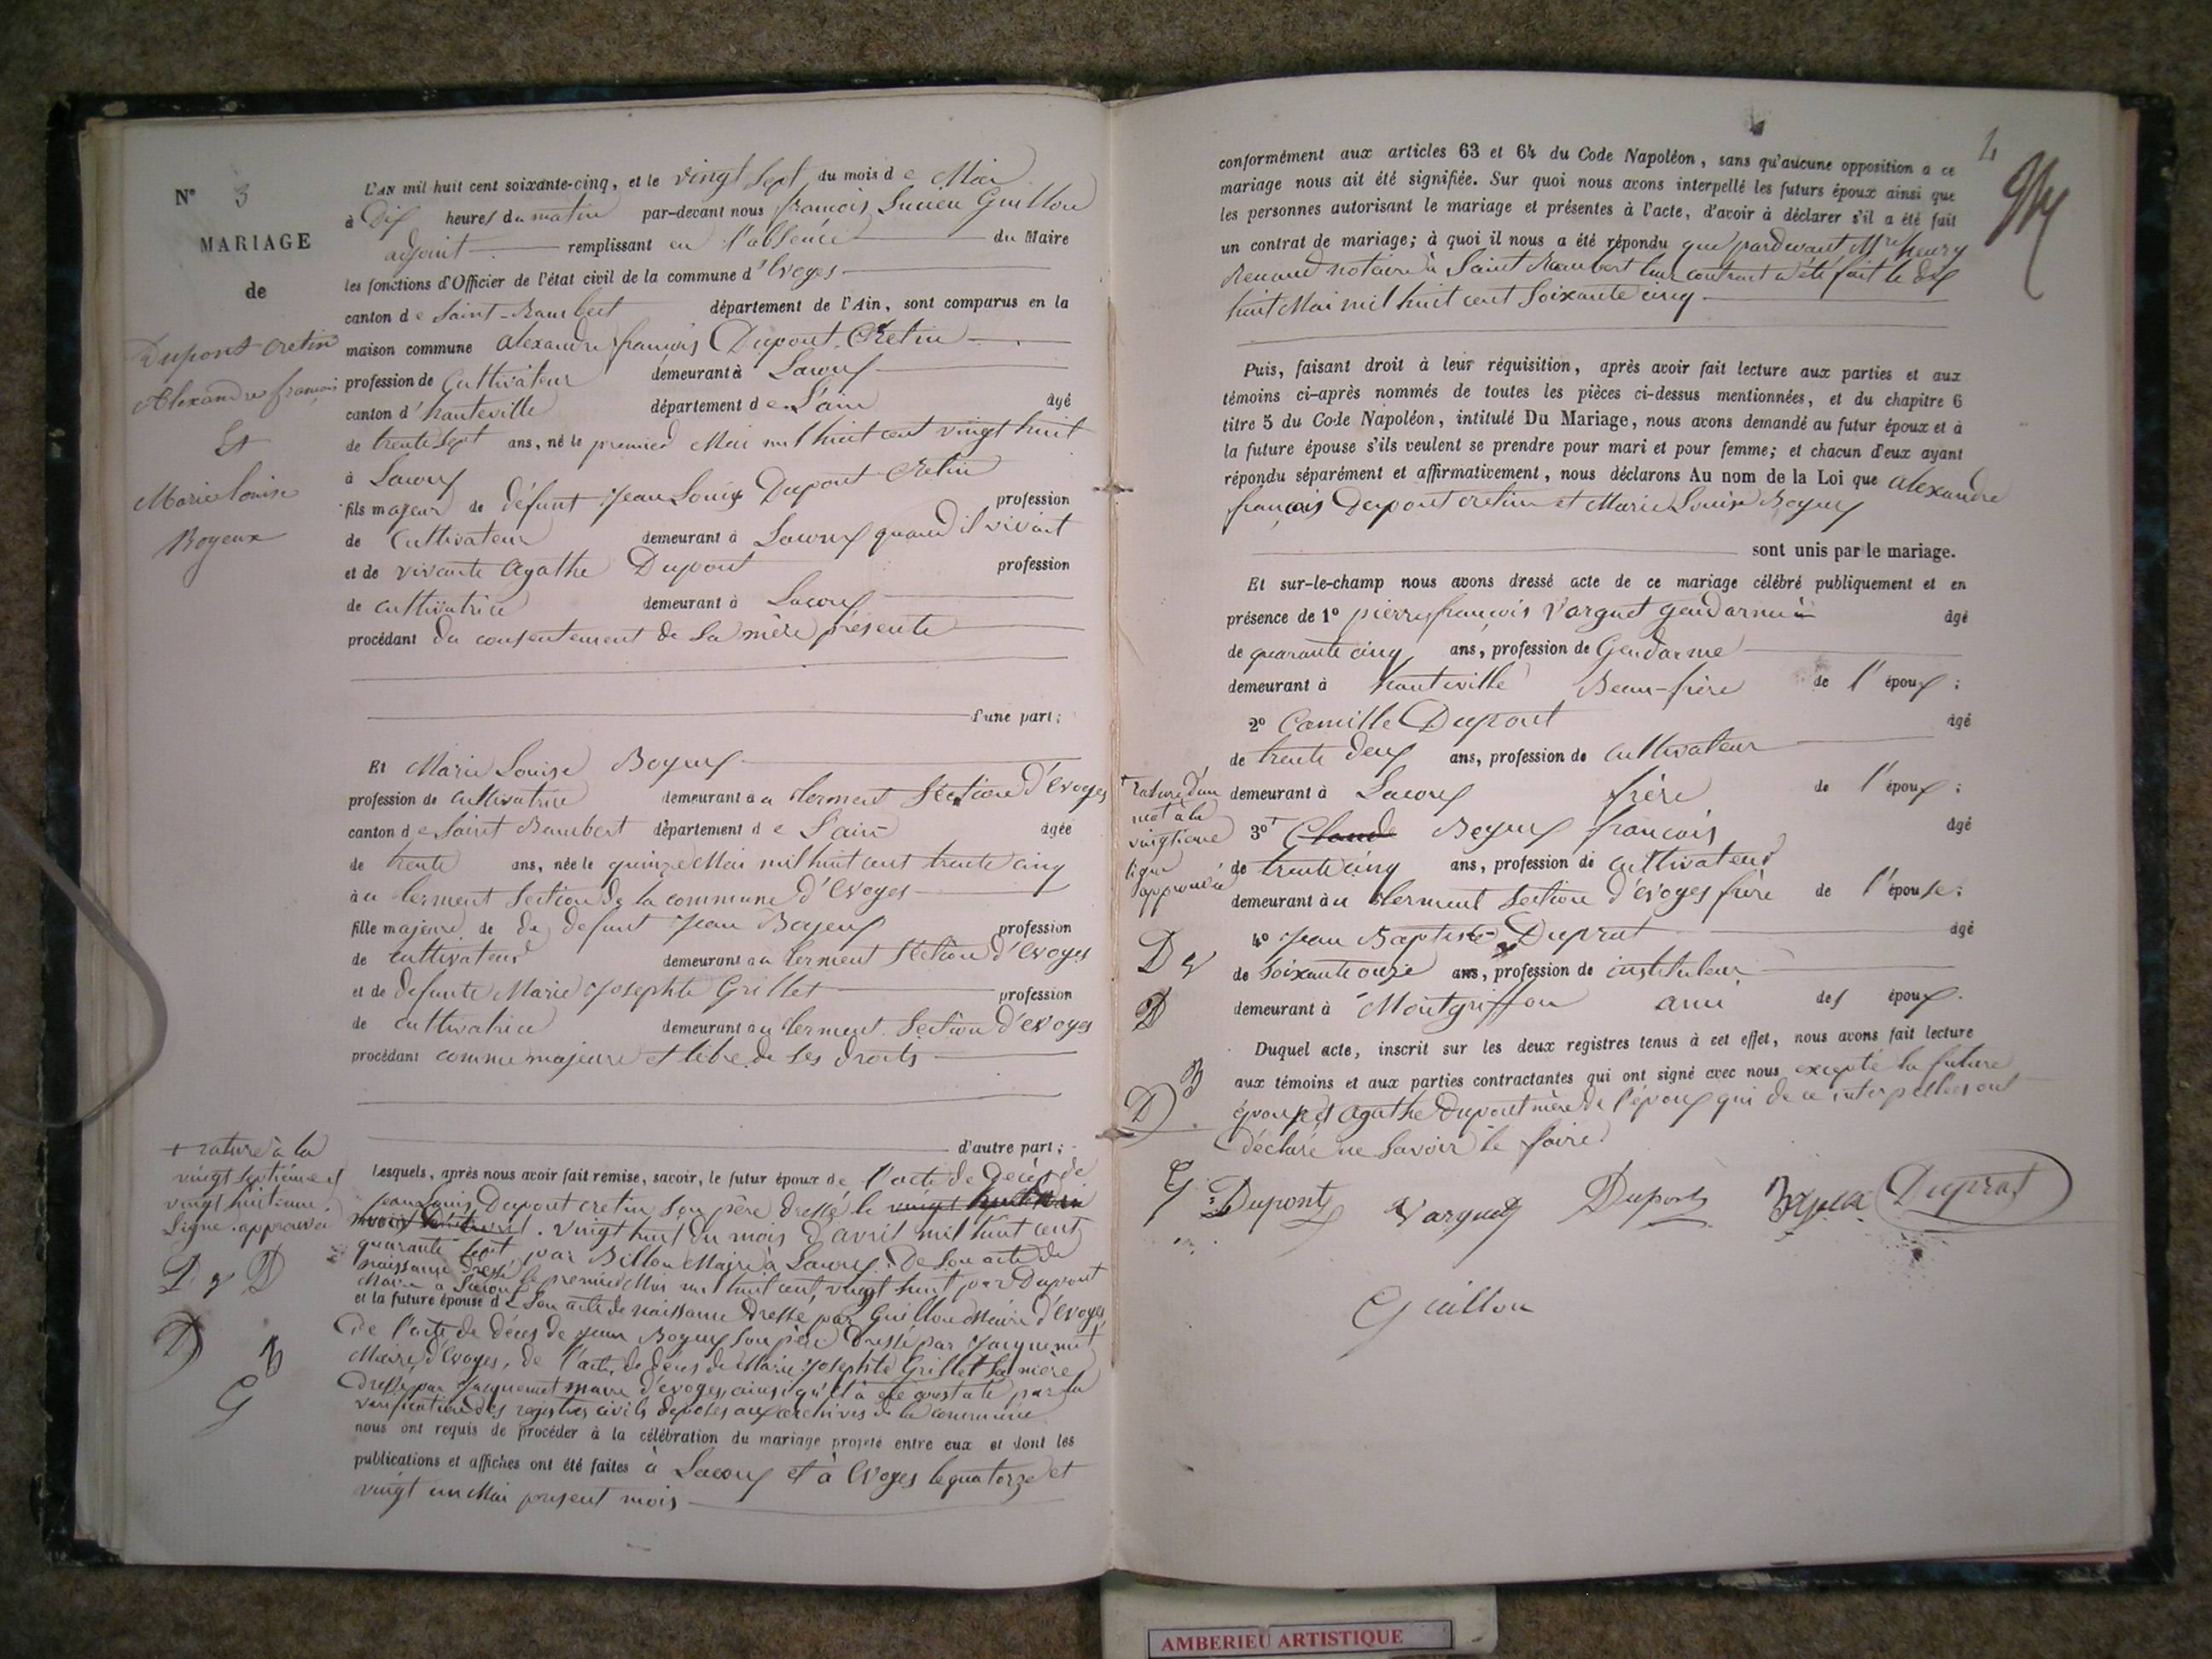 N° 3
MARIAGE
de
Dupont Cretin
Alexandre françois
Et
Marie Louise
Boyeux
L'AN mil huit cent soixante-cinq, et le vingt sept du mois de Mai
à Dix heures du matin par-devant nous françois Lucien Guillon
adjoint remplissant en l'absence du Maire
les fonctions d'Officier de l'état civil de la commune d'Evoges
canton de Saint-Rambert département de l'Ain, sont comparus en la
maison commune Alexandre françois Dupont Cretin
profession de Cultivateur demeurant à Lacoux
canton d'hauteville département de L'ain âgé
de trente sept ans, né le premier Mai mil huit cent vingt huit
à Lacoux
fils majeur de défunt Jean Louis Dupont Cretin profession
de Cultivateur demeurant à Lacoux quand il vivait
et de vivante Agathe Dupont profession
de cultivatrice demeurant à Lacoux
procédant du consentement de Sa mère présente
d'une part;
Et Marie Louise Boyeux
profession de cultivatrice demeurant au terment Section d'Evoges
canton de Saint Rambert département de L'ain âgée
de trente ans, née le quinze Mai mil huit cent trente cinq
à u terment Section de la commune d'Evoges
fille majeure de du defunt Jean Boyeux profession
de cultivateur demeurant au terment Section d'Evoges
et de defunte Marie Josephte Grillet profession
de cultivatrice demeurant au terment Section d'Evoges
procédant comme majeure et libre de Ses droits
d'autre part;
+ rature à la
vingt septième et
vingt huitième
ligne approuvée
D v D
D B
G
Lesquels, après nous avoir fait remise, savoir, le futur époux de l'acte de Décès de
Jean Louis Dupont cretin Son père dressé le vingt huit
vingt huit du mois d'avril mil huit cent
quarante sept par Billon Maire à Lacoux. De Son acte de
naissance dressé le premier Mai mil huit cent vingt huit par Dupont
Maire à Lacoux
et la future épouse de Son acte de naissance dressé par Guillon Maire d'Evoges,
De l'acte de décès de Jean Boyeux Son père dressé par Jacquemet
Maire d'Evoges, de l'acte de décès de Marie Josephte Grillet Sa mère
dressé par Jacquemet maire d'évoges, ainsi qu'il à été constaté par la
vérification des registres civils déposés aux archives de la commune
nous ont requis de procéder à la célébration du mariage projeté entre eux et dont les
publications et affiches ont été faites à Lacoux et à Evoges le quatorze et
vingt un Mai présent mois
4
conformément aux articles 63 et 64 du Code Napoléon, sans qu'aucune opposition a ce
mariage nous ait été signifiée. Sur quoi nous avons interpellé les futurs époux ainsi que
les personnes autorisant le mariage et présentes à l'acte, d'avoir à déclarer s'il a été fait
un contrat de mariage; à quoi il nous a été répondu que pardevant Mre henry
Renaud notaire à Saint Rambert leur contrat a été fait le dix
huit Mai mil huit cent Soixante cinq
Puis, faisant droit à leur réquisition, après avoir fait lecture aux parties et aux
témoins ci-après nommés de toutes les pièces ci-dessus mentionnées, et du chapitre 6
titre 5 du Code Napoléon, intitulé Du Mariage, nous avons demandé au futur époux et à
la future épouse s'ils veulent se prendre pour mari et pour femme; et chacun d'eux ayant
répondu séparément et affirmativement, nous déclarons Au nom de la Loi que Alexandre
françois Dupont cretin et Marie Louise Boyeux
sont unis par le mariage.
Et sur-le-champ nous avons dressé acte de ce mariage célébré publiquement et en
présence de 1° pierre françois Varguet gendarme à âgé
de quarante cinq ans, profession de Gendarme
demeurant à hauteville Beau-frère de l'époux;
2° Camille Dupont âgé
de trente deux ans, profession de cultivateur
demeurant à Lacoux frère de l'époux;
+ rature d'un
mot à la
vingtième
ligne
approuvée
D v
D
B
D
3° + Claude Boyeux françois âgé
de trente cinq ans, profession de cultivateur
demeurant au terment Section d'Evoges frère de l'épouse;
4° Jean Baptiste Duprat âgé
de Soixante onze ans, profession de instituteur
demeurant à Montgriffon ami des époux.
Duquel acte, inscrit sur les deux registres tenus à cet effet, nous avons fait lecture
aux témoins et aux parties contractantes qui ont signé avec nous excepté la future
épouse et Agathe Dupont mère de l'époux qui de ce interpellées ont
déclaré ne Savoir le faire
G Dupont Varguet Dupont Boyeux Duprat
Guillon
AMBERIEU ARTISTIQUE